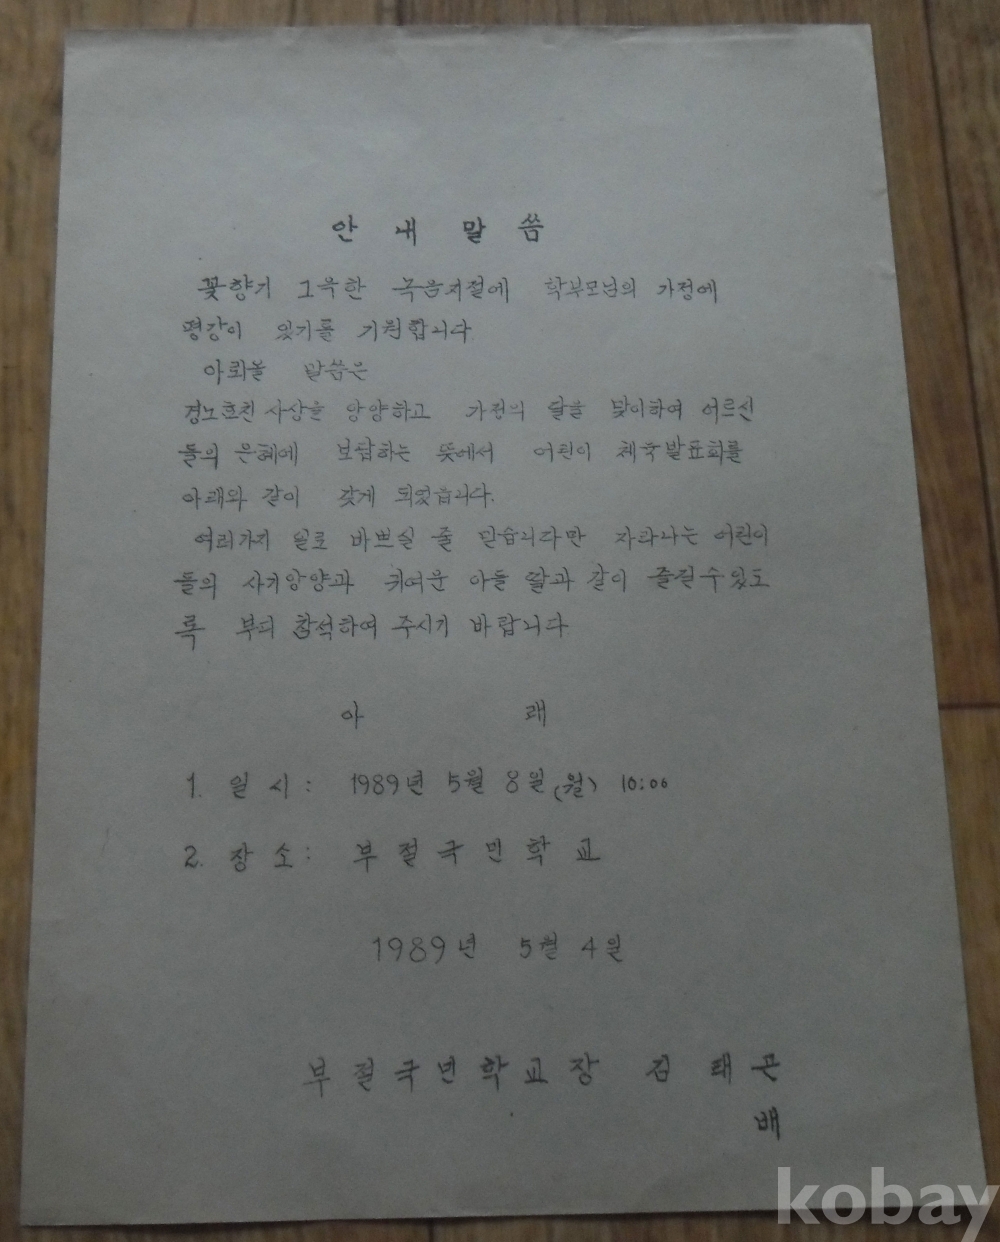 안 내 말 씀
꽃향기 그윽한 녹음지절에 학부모님의 가정에
평강이 있기를 기원합니다.
아뢰올 말씀은
경노효친 사상을 앙양하고 가정의 달을 맞이하여 어르신
들의 은혜에 보답하는 뜻에서 어린이 체육발표회를
아래와 같이 갖게 되었습니다.
여러가지 일로 바쁘실 줄 믿습니다만 자라나는 어린이
들의 사기앙양과 귀여운 아들 딸과 같이 즐길수있도
록 부디 참석하여 주시기 바랍니다
아 래
1. 일 시 : 1989년 5월 8일(월) 10:00
2. 장 소 : 부 절 국 민 학 교
1989년 5월 4일
부 절 국 민 학 교 장 김 태 곤
배
kobay